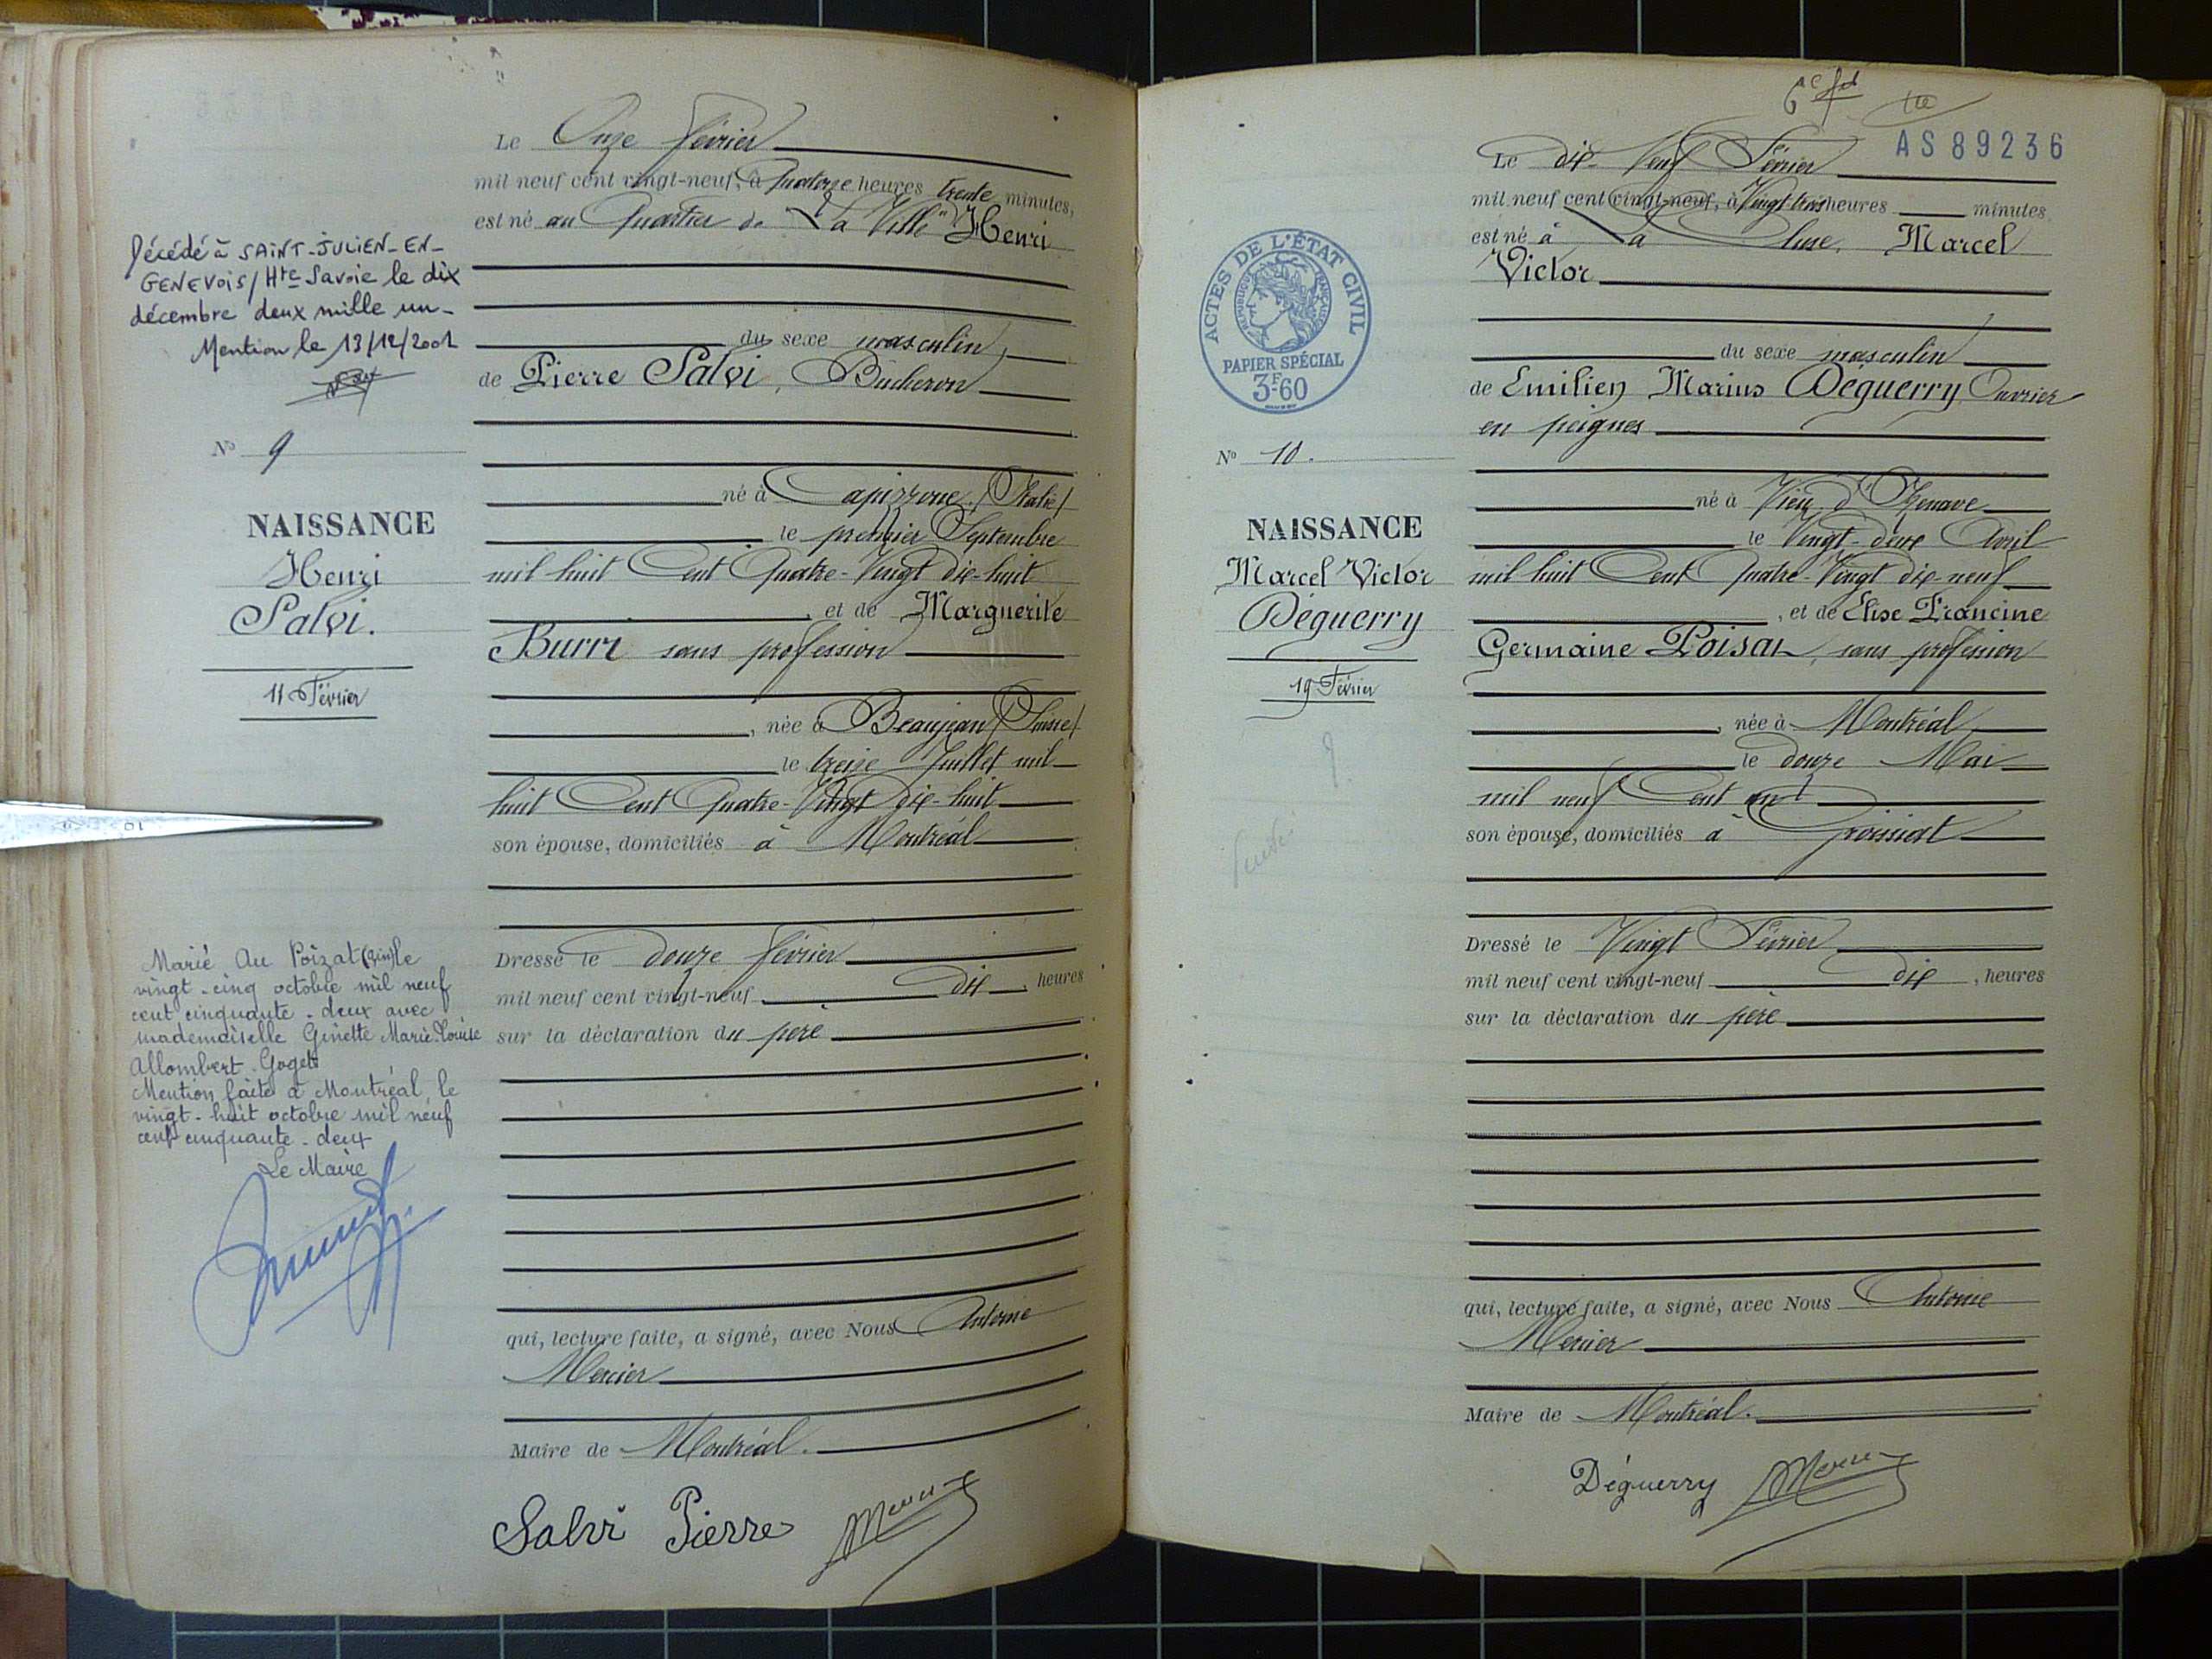 Décédé à SAINT-JULIEN-EN-
GENEVOIS/Hte-Savoie le dix
décembre deux mille un-
Mention le 13/12/2001
N° 9
NAISSANCE
Henri
Salvi.
11 Février
Marié Au Poizat (Ain) le
vingt-cinq octobre mil neuf
cent cinquante-deux avec
mademoiselle Ginette Marie-Louise
Allombert-Goget
Mention faite à Montréal, le
vingt-huit octobre mil neuf
cent cinquante-deux
Le Maire
Le Onze février
mil neuf cent vingt-neuf, à quatorze heures trente minutes,
est né au Quartier de "La Ville" Henri
du sexe masculin,
de Pierre Salvi, Bûcheron
né à Capizzone /Italie/
le premier Septembre
mil huit Cent Quatre-Vingt dix-huit
, et de Marguerite
Burri sans profession
, née à Beaujean /Suisse/
le treize Juillet mil
huit Cent Quatre-Vingt dix-huit
son épouse, domiciliés à Montréal
Dressé le douze février
mil neuf cent vingt-neuf dix, heures
sur la déclaration du père
qui, lecture faite, a signé, avec Nous Antoine
Mercier
Maire de Montréal.
Salvi Pierre Mercier
AS 89236
ACTES DE L'ÉTAT CIVIL
RÉPUBLIQUE FRANÇAISE
PAPIER SPÉCIAL
3F60
N° 10.
NAISSANCE
Marcel Victor
Déguerry
19 Février
Le dix-neuf Février
mil neuf cent vingt-neuf, à Vingt trois heures minutes
est né à La Cluse, Marcel
Victor
du sexe masculin
de Emilien Marius Déguerry Ouvrier
en peignes
né à Vieu d'Izenave
le Vingt-deux Avril
mil huit Cent Quatre-Vingt dix-neuf
, et de Elise Francine
Germaine Poisat, sans profession
, née à Montréal
le douze Mai
mil neuf Cent un
son épouse, domiciliés à Groissiat
Dressé le Vingt Février
mil neuf cent vingt-neuf dix, heures
sur la déclaration du père
qui, lecture faite, a signé, avec Nous Antoine
Mercier
Maire de Montréal.
Déguerry Mercier